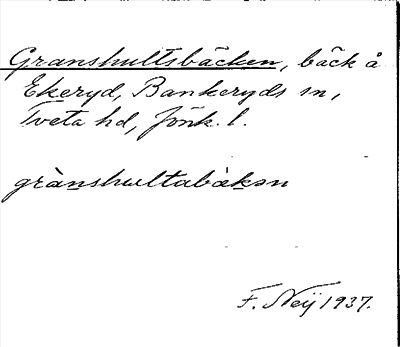 Granshultsbäcken, bäck å
Ekeryd, Bankeryds sn,
Tveta hd, Jönk. l.
grànshultabäkən
F. Neÿ 1937.